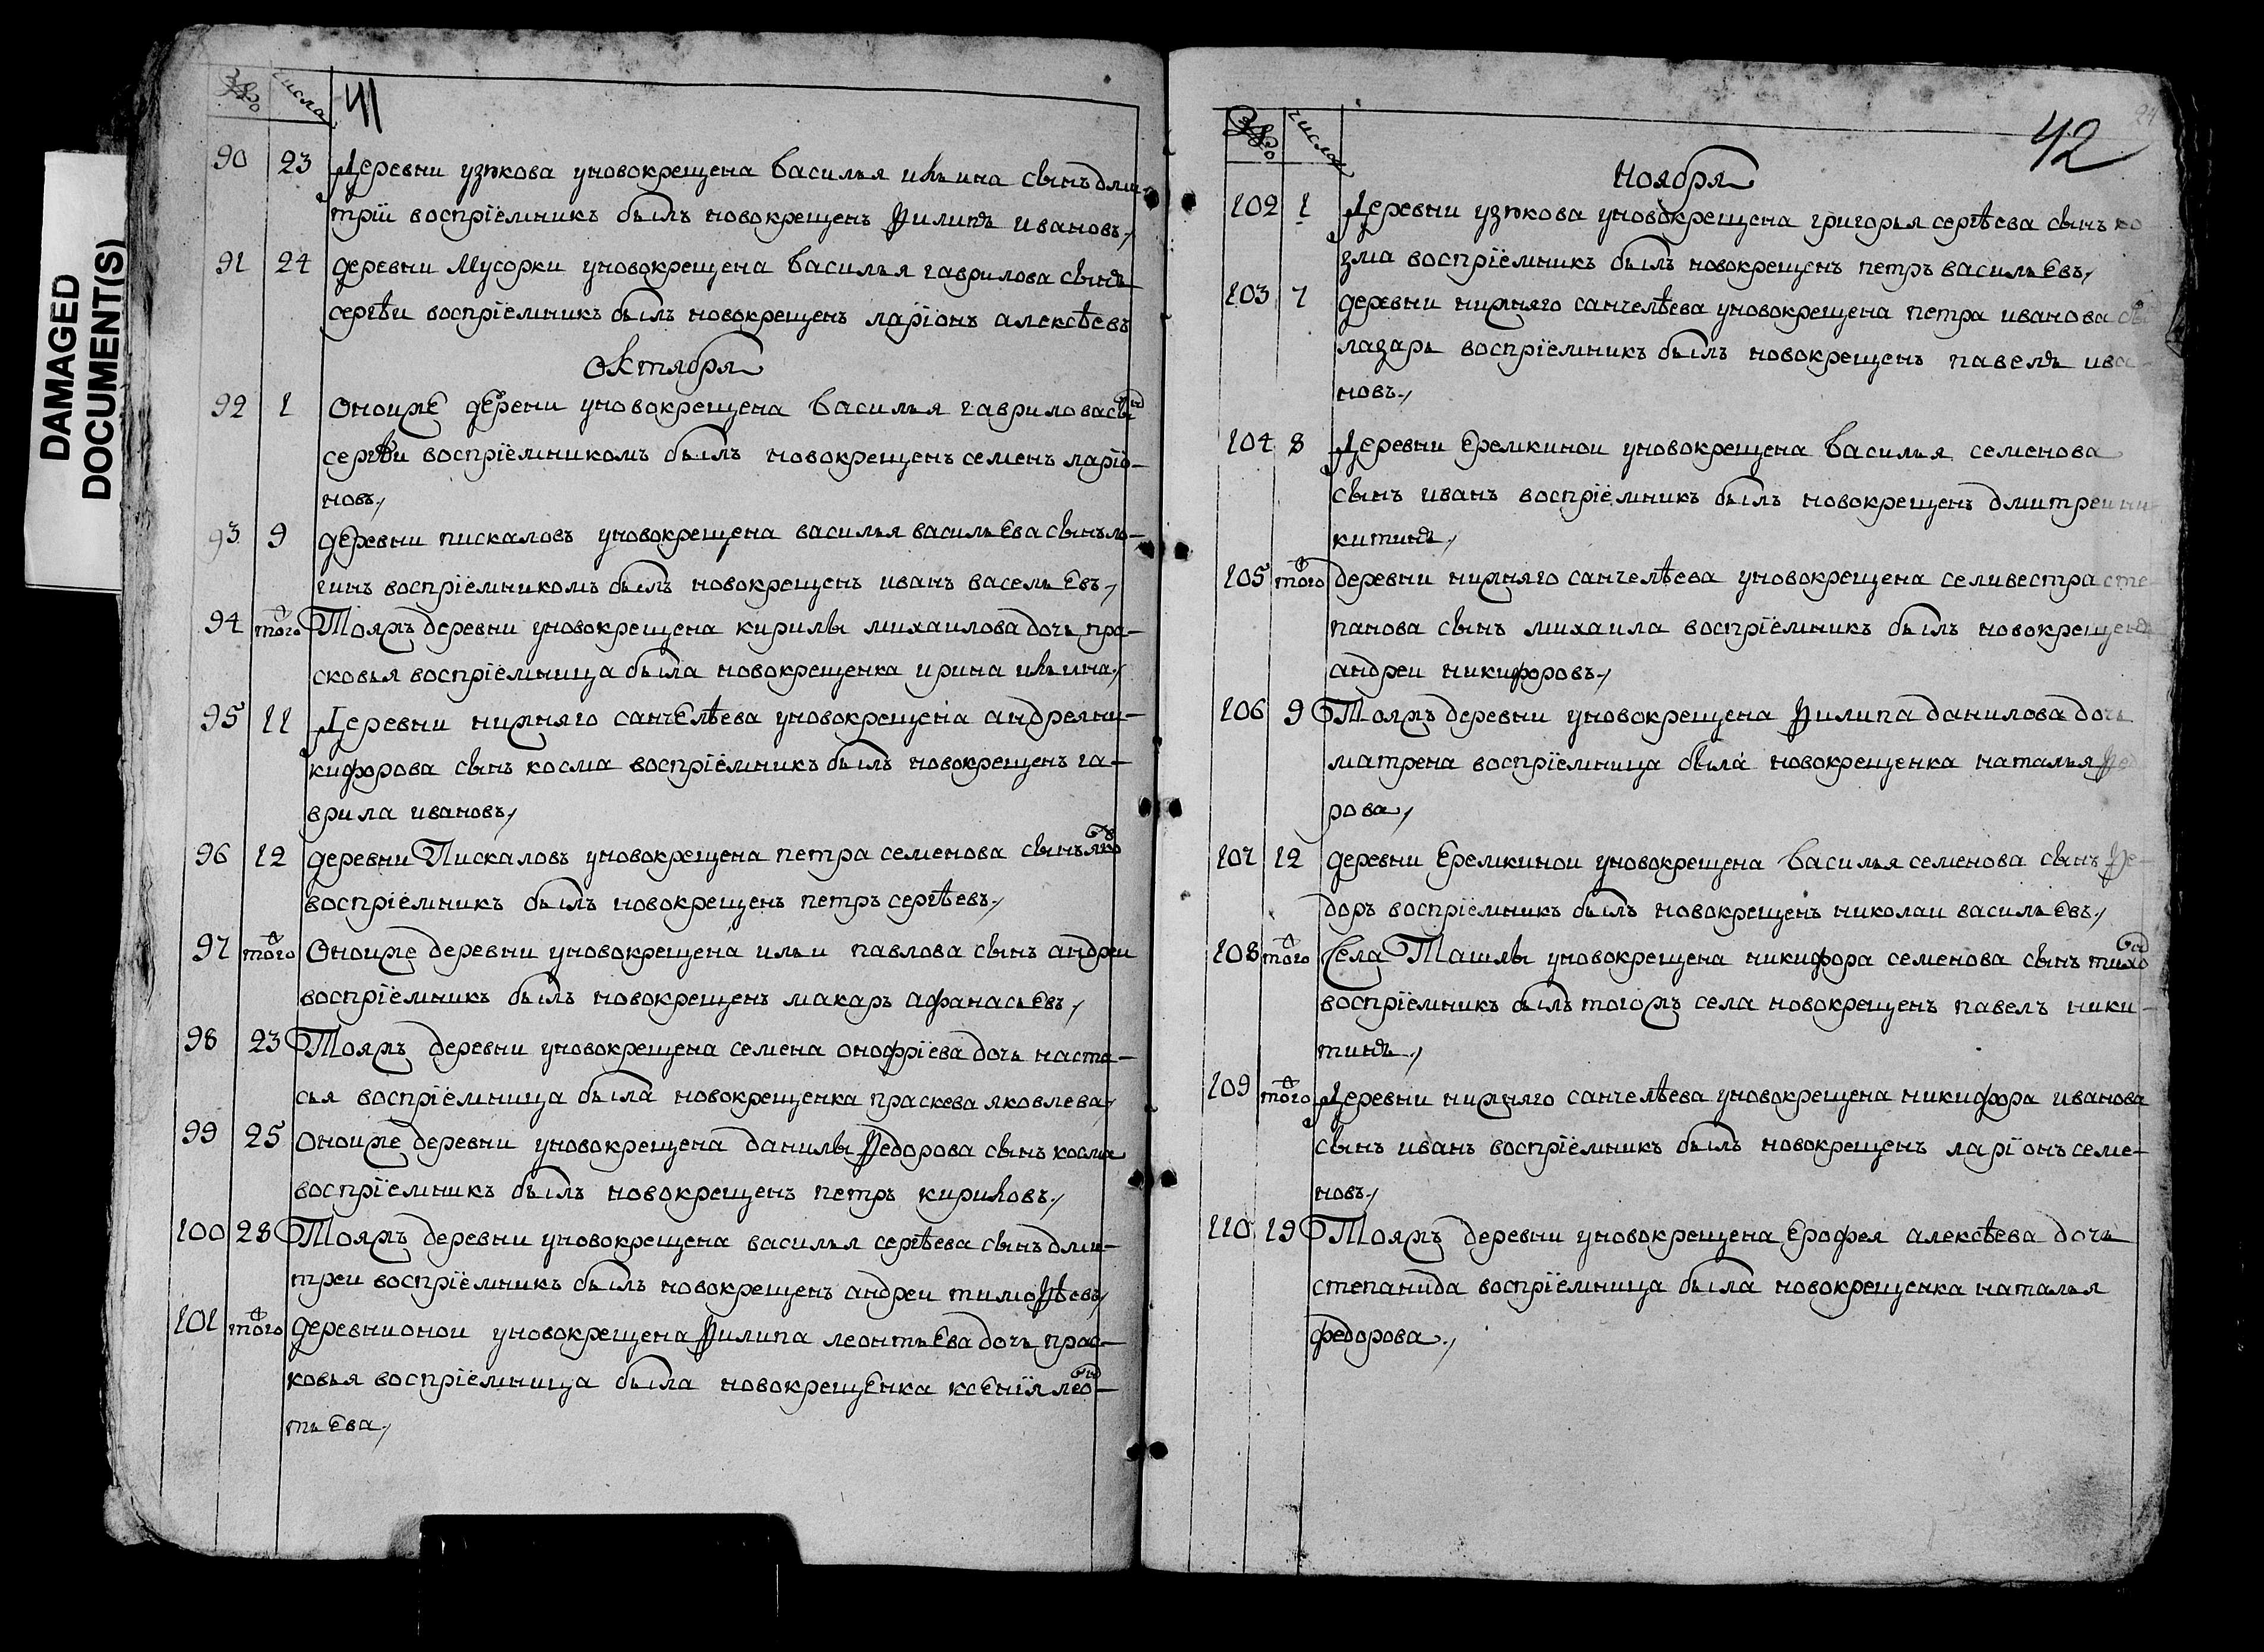 DAMAGED
DOCUMENT(S)
числа
41
90 23 Деревни узюкова уновокрещена василья ильина сынъ дми-
трїи воспрїемникъ былъ новокрещенъ филипъ ивановъ,
91 24 деревни Мусорки уновокрещена василья гаврилова сынъ
сергѣи воспрїемникъ былъ новокрещенъ ларїонъ алексѣевъ
Октября
92 1 Оноиже дерени уновокрещена василья гаврилова сынъ
сергѣи воспрїемникомъ былъ новокрещенъ семенъ ларїо-
новъ,
93 9 деревни пискаловъ уновокрещена василья васильева сынъ ло-
гинъ воспрїемникомъ былъ новокрещенъ иванъ васельевъ,
94 того Тояжъ деревни уновокрещена кирилы михаилова дочь пра-
сковья воспрїемница была новокрещенка ирина ильина,
95 11 Деревни нижняго санчелѣева уновокрещена андрея ни-
кифорова сынъ косма воспрїемникъ былъ новокрещенъ га-
врила ивановъ,
96 12 деревни Пискаловъ уновокрещена петра семенова сынъ яковъ
воспрїемникъ былъ новокрещенъ петръ сергѣевъ,
97 того Оноиже деревни уновокрещена ильи павлова сынъ андреи
воспрїемникъ былъ новокрещенъ макаръ афанасьевъ,
98 23 Тояжъ деревни уновокрещена семена онофрїева дочь наста-
сья воспрїемница была новокрещенка праскева яковлева,
99 25 Оноиже деревни уновокрещена данилы федорова сынъ косма
воспрїемникъ былъ новокрещенъ петръ кириловъ,
100 28 Тояжъ деревни уновокрещена василья сергѣева сынъ дми-
треи воспрїемникъ былъ новокрещенъ андреи тимофѣевъ,
101 того деревни онои уновокрещена филипа леонтьева дочь прас-
ковья воспрїемница была новокрещенка ксенїя леон-
тьева,
числа
42
24
Ноября
102 1 Деревни узюкова уновокрещена григорья сергѣева сынъ ко
зма воспрїемникъ былъ новокрещенъ петръ васильевъ,
103 7 деревни нижняго санчелѣева уновокрещена петра иванова
лазарь воспрїемникъ былъ новокрещенъ павелъ ива-
новъ,
104 8 Деревни Еремкинои уновокрещена василья семенова
сынъ иванъ воспрїемникъ былъ новокрещенъ дмитреи ни-
китинъ,
105 того деревни нижняго санчелѣева уновокрещена селивестра сте-
панова сынъ михаила воспрїемникъ былъ новокрещенъ
андреи никифоровъ,
106 9 Тояжъ деревни уновокрещена филипа данилова дочь
матрена воспрїемница была новокрещенка наталья фед
рова,
107 12 деревни Еремкинои уновокрещена василья семенова сынъ фе-
доръ воспрїемникъ былъ новокрещенъ николаи васильевъ,
108 того Села Ташлы уновокрещена никифора семенова сынъ тихонъ
воспрїемникъ былъ тогожъ села новокрещенъ павелъ ники-
тинъ,
109 того Деревни нижняго санчелѣева уновокрещена никифора иванова
сынъ иванъ воспрїемникъ былъ новокрещенъ ларїонъ семе-
новъ,
110 19 Тояжъ деревни уновокрещена Ерофея алексѣева дочь
степанида воспрїемница была новокрещенка наталья
федорова,